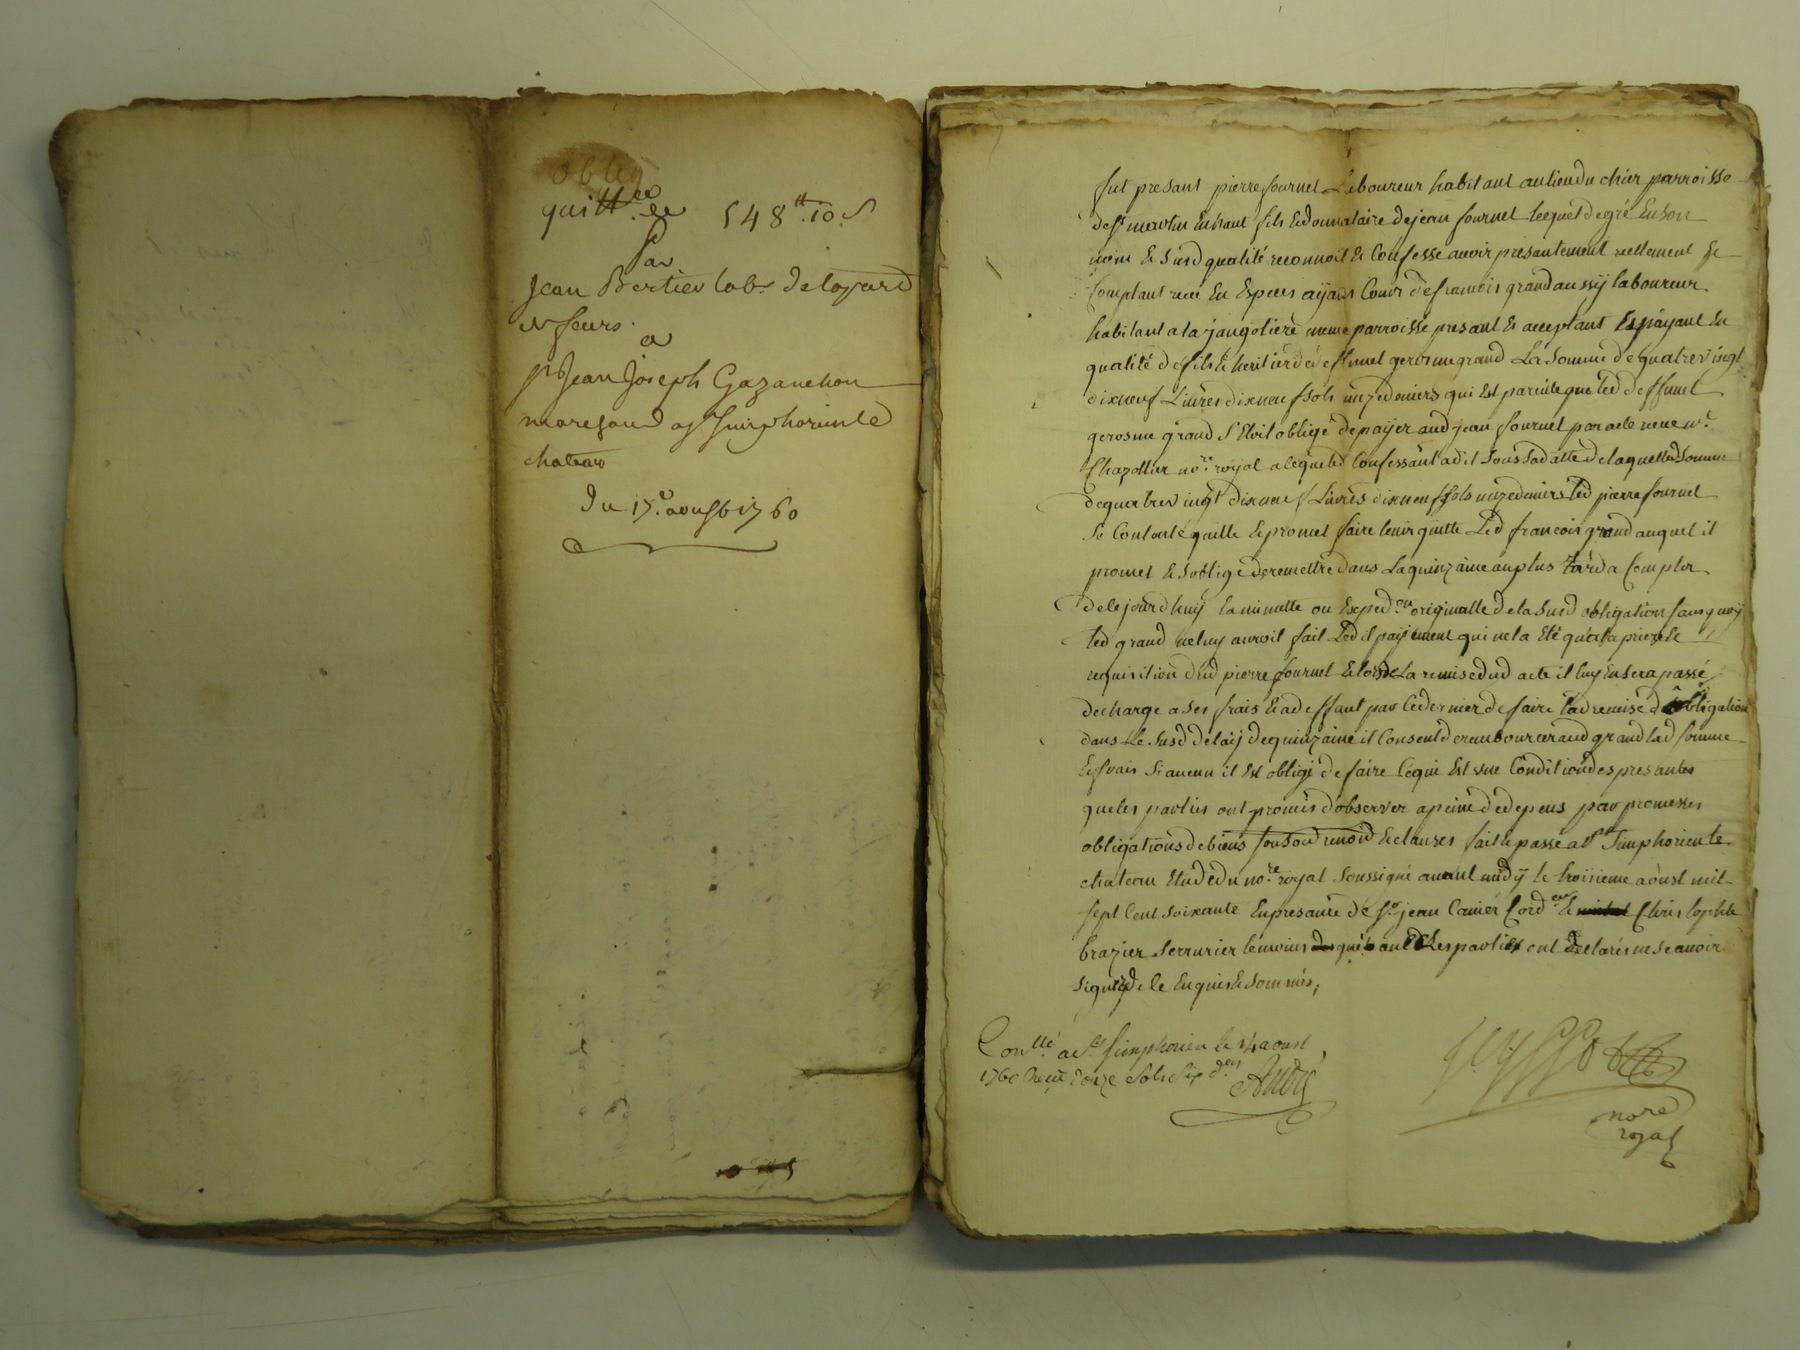 oblig
quitt.ce de 548 tt. 10 s
Par
Jean Bertier lab.r
a
Jean Joseph Gazanchon
marchand a St Simphorien le
chateau
Du 17.e aoust 1760
fut presant pierre fournel Laboureur habitant au lieu du chier parroisse
de st martin en haut fils & donnataire de jean fournel lequel de gré en son
nom & susd qualité reconnoit & Confesse avoir presantement reellement &
Comptant receu En Especes ayans Cours de francois grand aussy laboureur
habitant a la jangotiere meme parroisse presant & acceptant & payant En
qualité de fils & heritier de deffunct gerosme grand La Somme de quatre vingt
dixneuf Livres dixneuf sols unze deniers qui Est pareille que led deffunct
gerosme grand s'Etoit obligé de payer aud jean fournel par acte receu m.e
Chazottier no.re royal a lequel led Confessant a dit sous sa datte de laquelle d. somme
de quatre vingt dixneuf Livres dixneuf sols unze deniers led pierre fournel
se Contente quitte & promet faire tenir quitte Led francois grand auquel il
promet & s'oblige de remettre dans La quinzaine au plus tard a Compter
de cejourd'huy la minutte ou Exped.on originalle de la susd obligation sans quoy
led grand ne luy auroit fait Led payement qui ne la Eté qu'a la priere &
requisition dud pierre fournel & lors de La remise dud acte il luy En sera passé
decharge a ses frais & a deffaut par ce dernier de faire lad remise d'obligation
dans Le susd delay de quinzaine il Consent de rembourcer aud grand lad somme
& frais si aucun il Est obligé de faire Ce qui Est une Condition des presantes
que les parties ont promis d'observer a peine de depens par promesses
obligations de biens renon.d & clauses fait & passé a St Simphorien le
chateau Etude du no.re royal soussigné avant midy le troisieme aoust mil
sept Cent soixante En presance de s.r jean Canier Cord.er & Christophle
brazier serrurier temoins les parties ont declaré ne scavoir
signer de ce Enquis & sommés;
Con.llé a St Simphorien le 14 aoust
1760 Receu douze sols six d.ers André
nore
royal